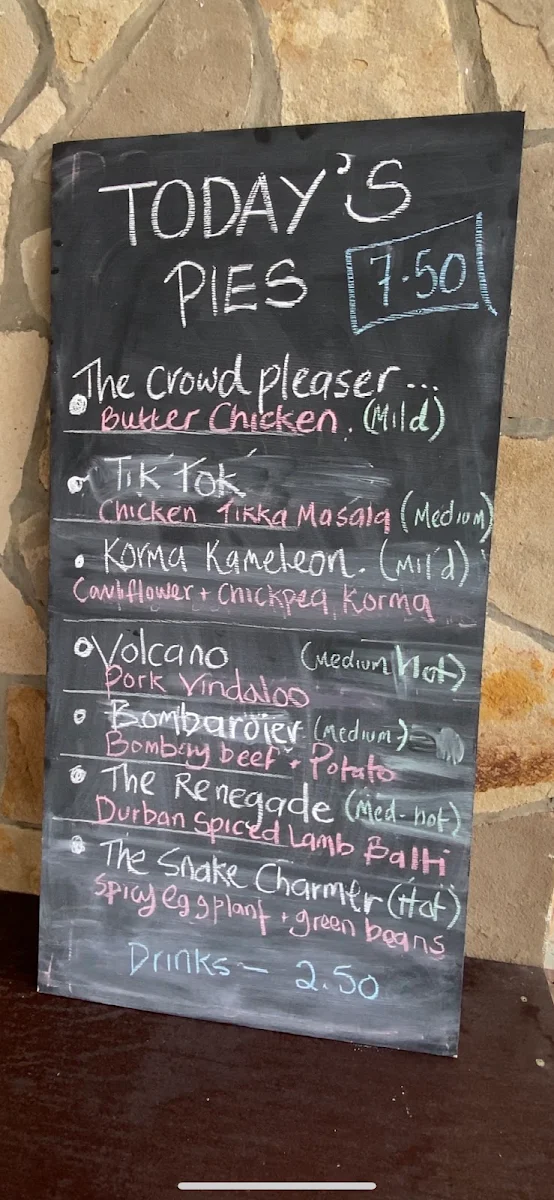 TODAY'S
PIES 7.50
The Crowd pleaser...
Butter Chicken. (Mild)
Tik Tok
Chicken Tikka Masala (Medium)
Korma Kameleon. (Mild)
Cauliflower + Chickpea Korma
Volcano (Medium/Hot)
Pork Vindaloo
Bombardier (Medium)
Bombay beef + Potato
The Renegade (Med-hot)
Durban Spiced Lamb Balti
The Snake Charmer (Hot)
Spicy eggplant + green beans
Drinks - 2.50